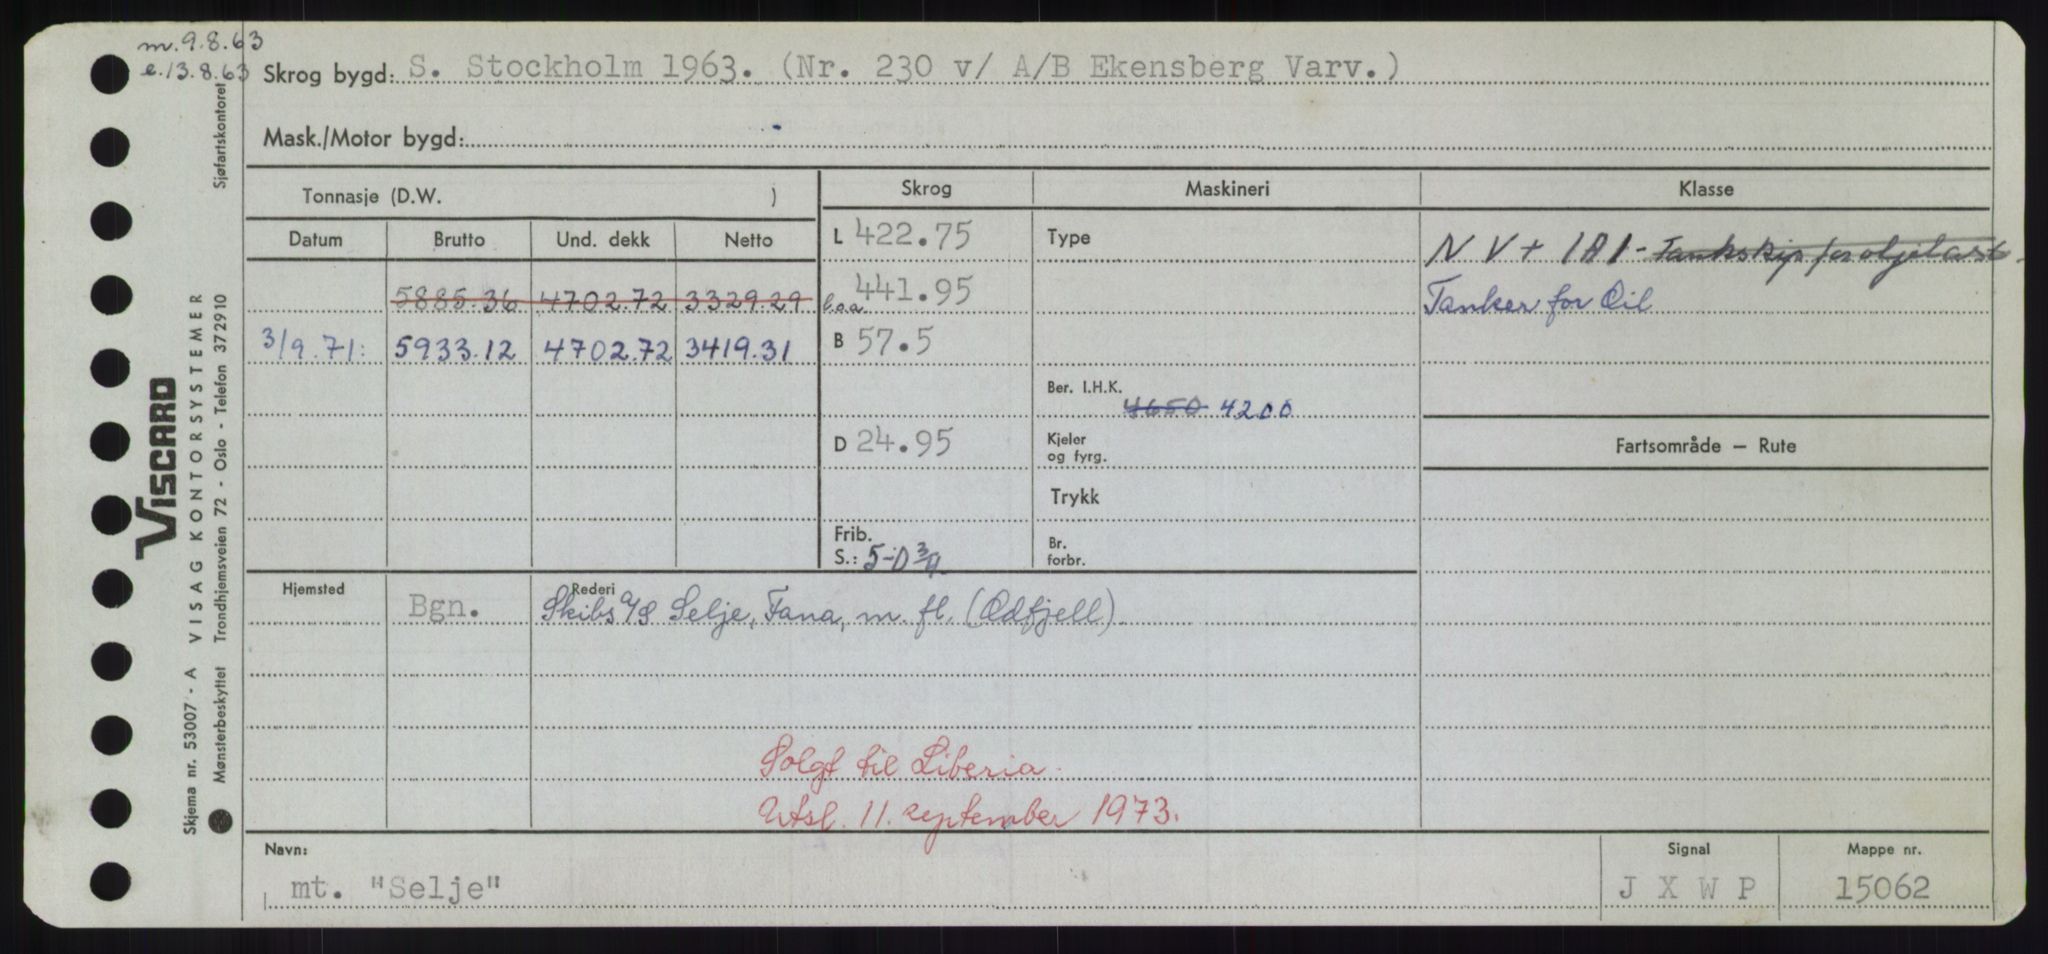 m. 9.8.63
e. 13.8.63
Skrog bygd: S. Stockholm 1963. (Nr. 230 v/ A/B Ekensberg Varv.)
Mask./Motor bygd:
Tonnasje (D.W. )
Skrog
Maskineri
Klasse
Datum
Brutto
Und. dekk
Netto
L 422.75
Type
N V + 1A1 - Tankskip for oljelast
5885.36 4702.72 3329.29
l.o.a. 441.95
Tanker for Oil
3/9.71: 5933.12 4702.72 3419.31
B 57.5
Ber. I.H.K.
4650 4200
D 24.95
Kjeler
og fyrg.
Fartsområde — Rute
Trykk
Frib.
S.: 5-0 3/4
Br.
forbr.
Hjemsted
Bgn.
Rederi
Skibs a/s Selje, Fana, m. fl. (Odfjell)
Solgt til Liberia.
Utsl. 11. september 1973.
Navn:
mt. "Selje"
Signal
J X W P
Mappe nr.
15062
VISCARD
Skjema nr. 53007 - A VISAG KONTORSYSTEMER
Mønsterbeskyttet Trondhjemsveien 72 - Oslo - Telefon 372910 Sjøfartskontoret